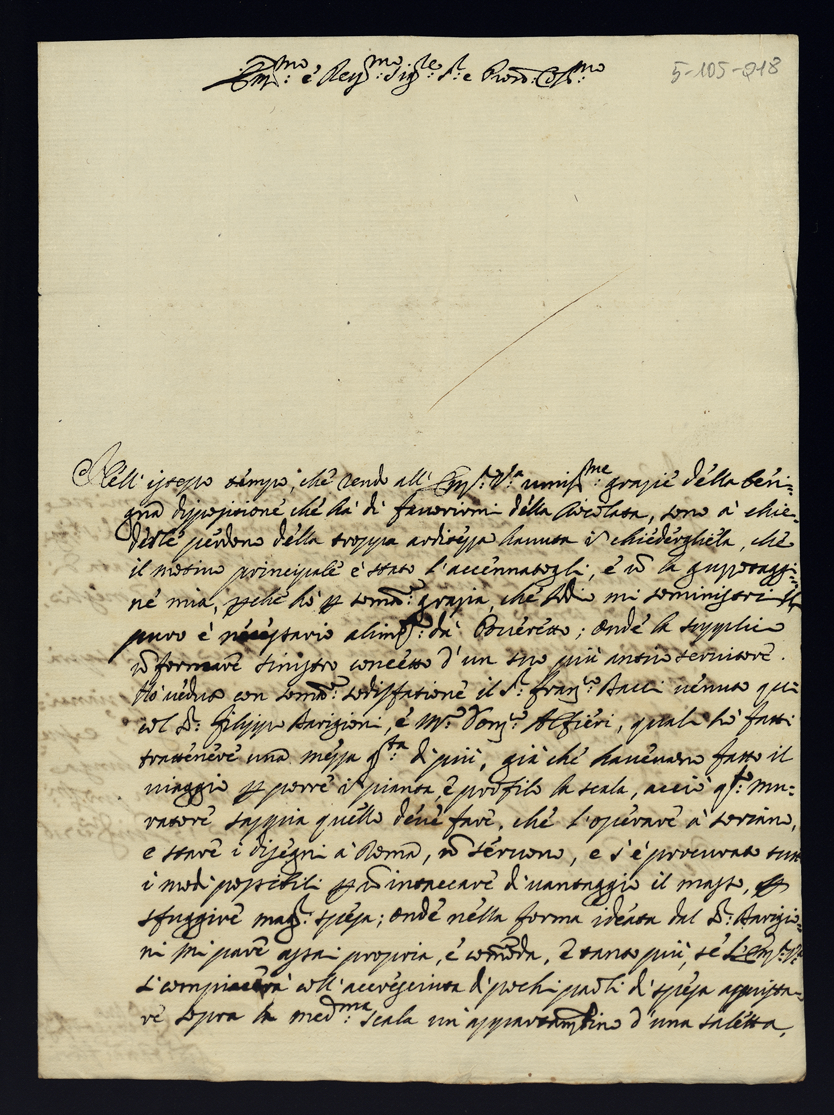 5-105-218
Em:mo e Rev:mo Sig:re S:r e Pron: Col:mo
Nell' istesso tempo, che rendo all' Em:a V:a umiss:me grazie della beni=
gna disposizione che hà di favorirmi della Ciocolata, sono à chie=
derle perdono della troppa arditezza havuta in chiederghela, che
il motivo principale è stato l'accennatogli, e non la
ne mia, perche hò per som:a grazia, che Iddio mi somministri il
puro e necessario alim:to da Poveretto; onde la supplico
non formare sinistro concetto d'un suo più antico servitore.
Hò veduto con som:a sodisfatione il S:r Fran:co Bacci venuto qui
col S:r Filippo Barigioni, e M:ro Dom:co Alfieri, quali hò fatti
trattenere una mezza g:ta di più, già che havevano fatto il
viaggio per porre in pianta e profilo la scala, acciò q:to mu=
ratore sappia quello deve fare, che l'operare à Soriano,
e stare i disegni à Roma, non servono, e s'è procurato tutti
i modi possibili per non intaccare di vantaggio il masso, per
sfuggire mag:r spesa; onde nella forma ideata dal S:r Barigio=
ni mi pare assai propria, e comoda, e tanto più, se l'Em:a V:a
si compiacerà coll' accrescimto di pochi paoli di spesa
re sopra la med:ma scala un' appartamentino d'una saletta,